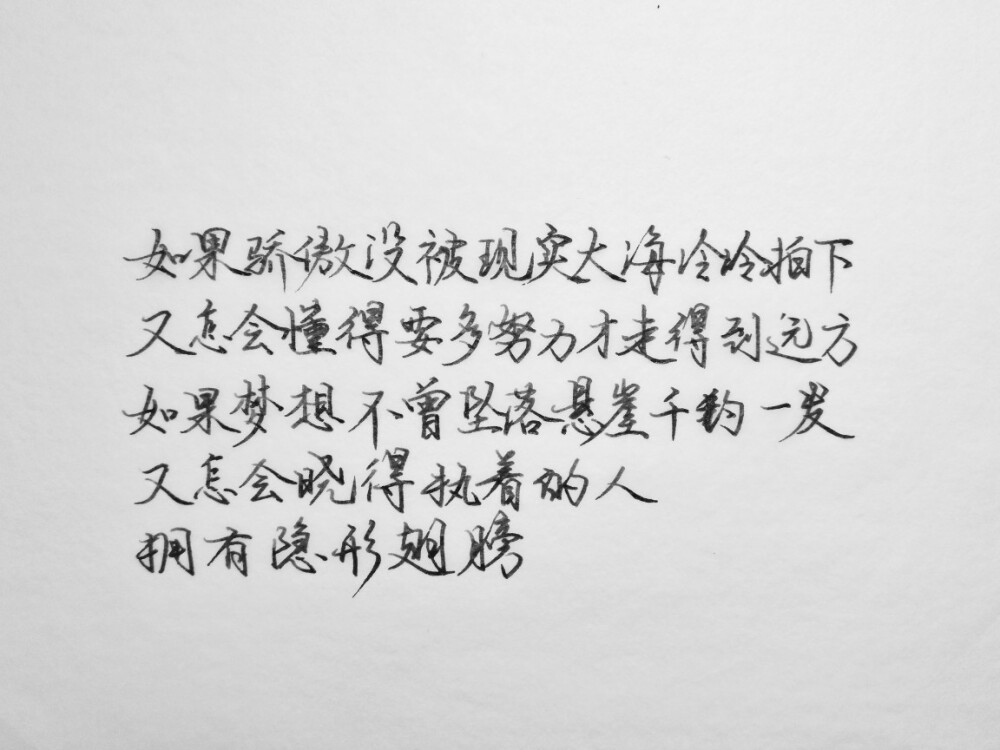 如果骄傲没被现实大海冷冷拍下
又怎会懂得要多努力才走得到远方
如果梦想不曾坠落悬崖千钧一发
又怎会晓得执着的人
拥有隐形翅膀